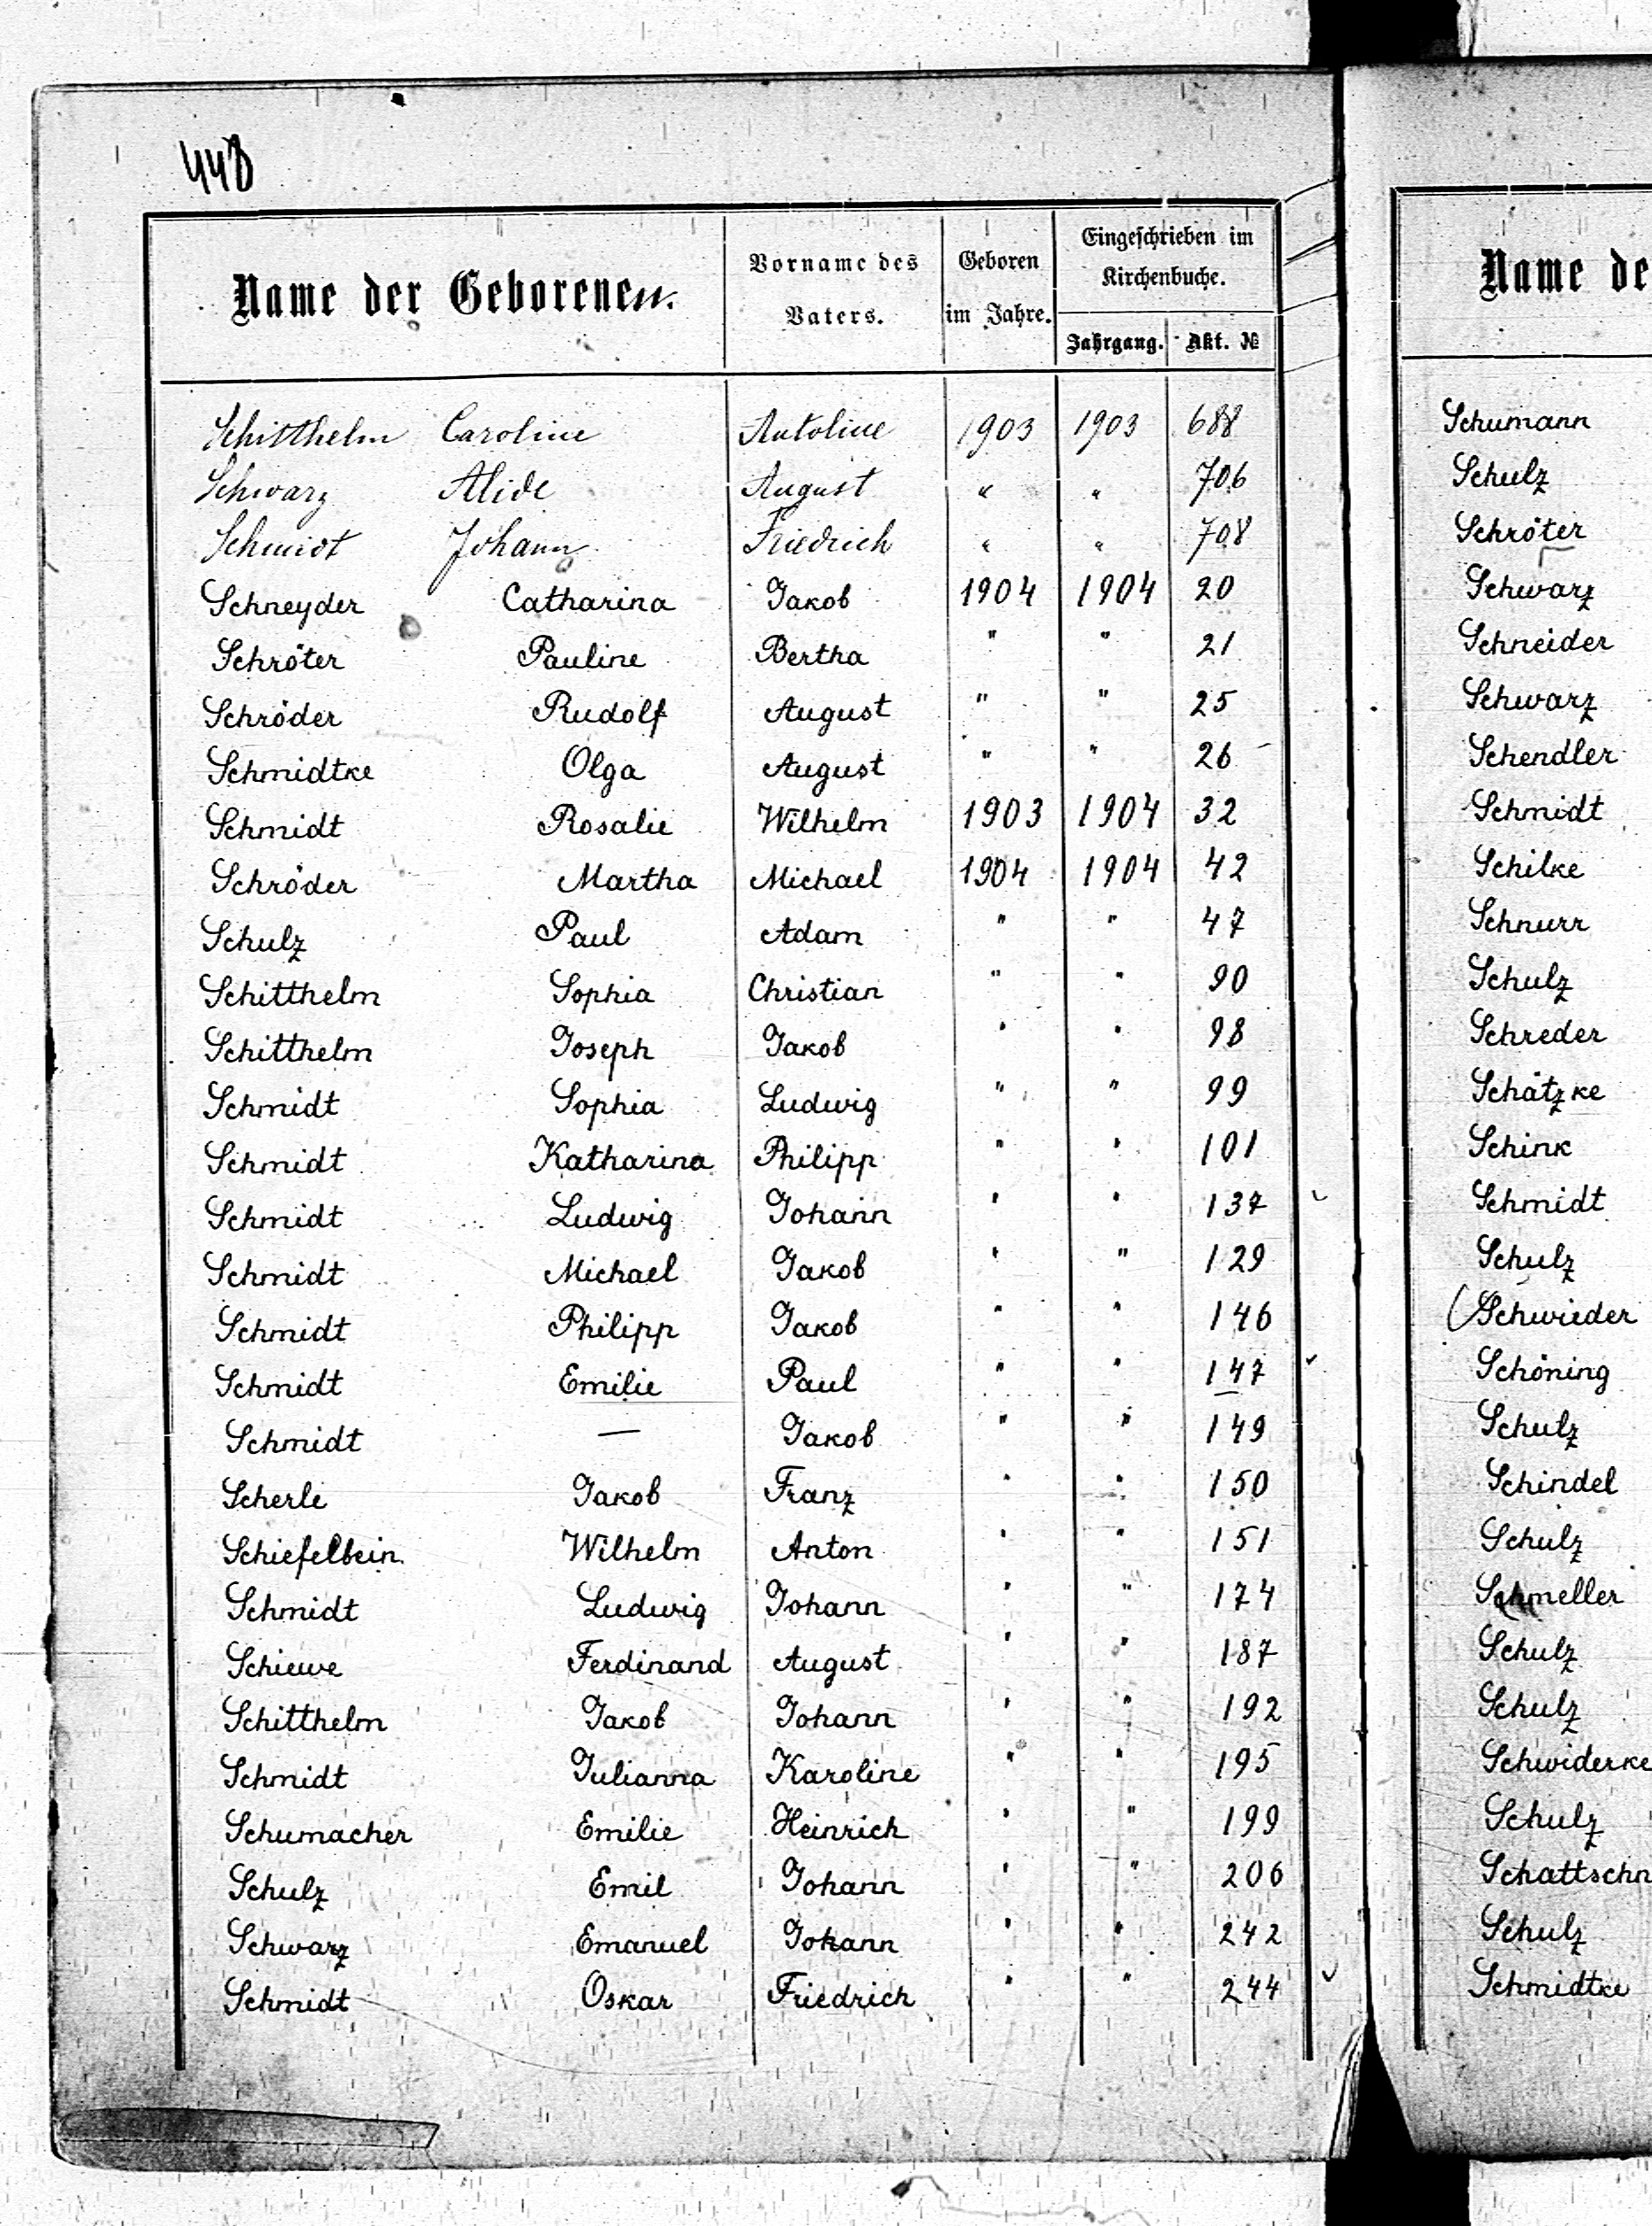 448
Name der Geborenen.
Vorname des
Vaters.
Geboren
im Jahre.
Eingeschrieben im
Kirchenbuche.
Jahrgang. Akt. №
Schitthelm Caroline Antoline 1903 1903 688
Schwarz Alide August " " 706
Schmidt Johann Friedrich " " 708
Schneyder Catharina Jakob 1904 1904 20
Schröter Pauline Bertha " " 21
Schröder Rudolf August " " 25
Schmidtke Olga August " " 26
Schmidt Rosalie Wilhelm 1903 1904 32
Schröder Martha Michael 1904 1904 42
Schulz Paul Adam " " 47
Schitthelm Sophia Christian " " 90
Schitthelm Joseph Jakob " " 98
Schmidt Sophia Ludwig " " 99
Schmidt Katharina Philipp " " 101
Schmidt Ludwig Johann " " 137
Schmidt Michael Jakob " " 129
Schmidt Philipp Jakob " " 146
Schmidt Emilie Paul " " 147
Schmidt — Jakob " " 149
Scherle Jakob Franz " " 150
Schiefelbein Wilhelm Anton " " 151
Schmidt Ludwig Johann " " 174
Schiewe Ferdinand August " " 187
Schitthelm Jakob Johann " " 192
Schmidt Julianna Karoline " " 195
Schumacher Emilie Heinrich " " 199
Schulz Emil Johann " " 206
Schwarz Emanuel Johann " " 242
Schmidt Oskar Friedrich " " 244
Name de
Schumann
Schulz
Schröter
Schwarz
Schneider
Schwarz
Schendler
Schmidt
Schilke
Schnurr
Schulz
Schreder
Schätzke
Schink
Schmidt
Schulz
Schwieder
Schöning
Schulz
Schindel
Schulz
Schmeller
Schulz
Schulz
Schwiderke
Schulz
Schattschn
Schulz
Schmidtke